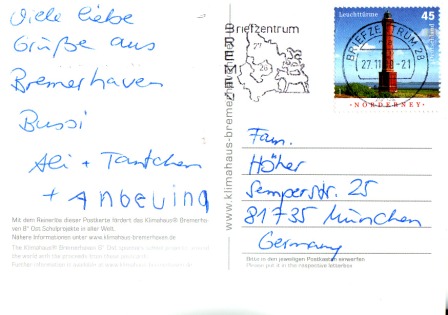 Viele liebe
Grüße aus
Bremerhaven
Bussi
Ali + Tantchen
+ Anbeuing
Mit dem Reinerlös dieser Postkarte fördert das Klimahaus® Bremerha-
ven 8° Ost Schulprojekte in aller Welt.
Nähere Informationen unter www.klimahaus-bremerhaven.de
The Klimahaus® Bremerhaven 8° Ost
the world with the proceeds from
Further information is available at www.klimahaus-bremerhaven
www.klimahaus-bremerhaven
Briefzentrum
BREMEN
27
28
Leuchttürme
45
Deutschland
BRIEFZENTRUM 28
27.11. -21
NORDERNEY
Fam.
Höher
Semperstr. 25
81735 München
Germany
Bitte in den jeweiligen Postkasten einwerfen
Please put it in the respective letterbox